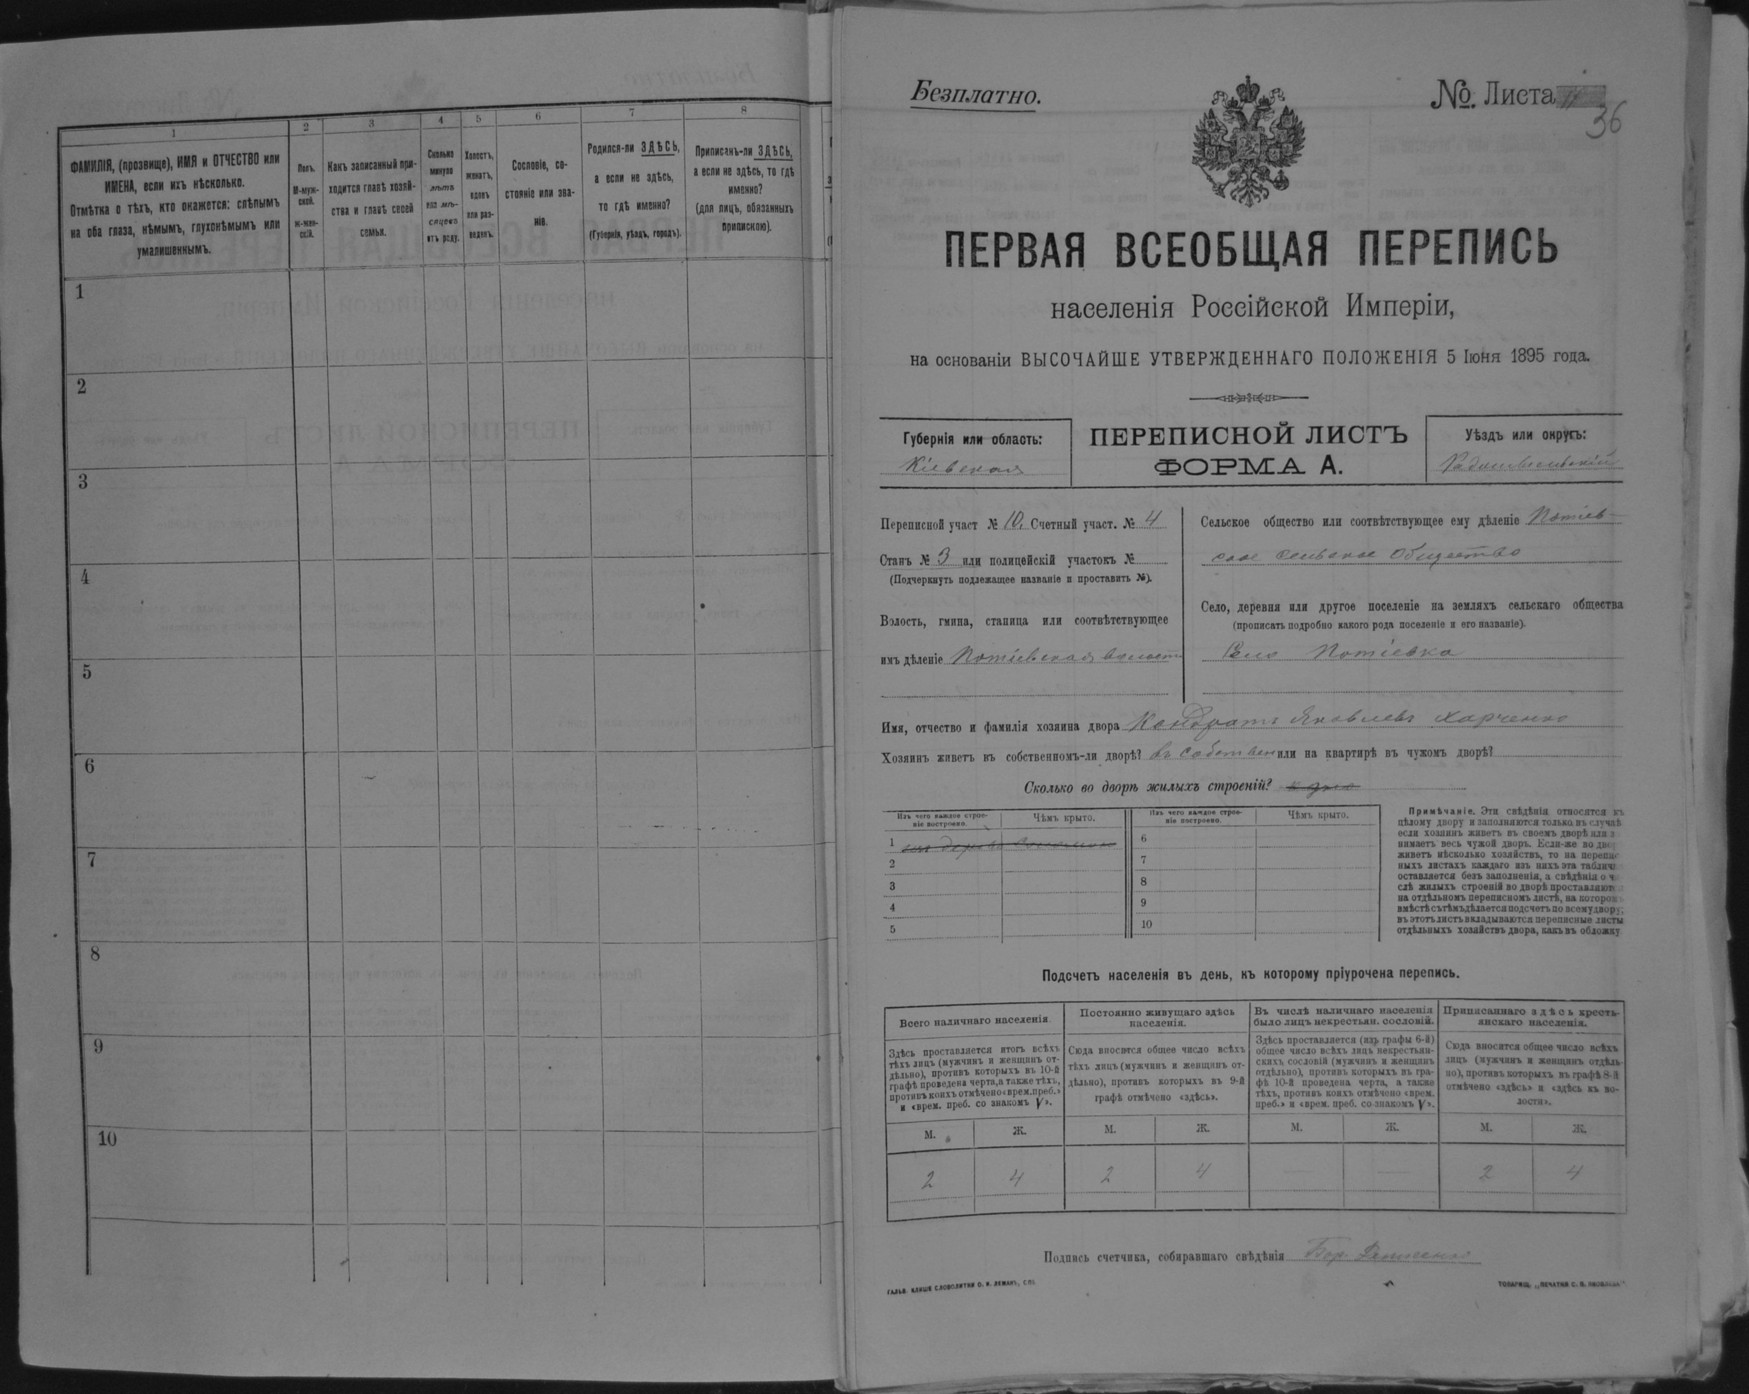 1
2
3
4
5
6
7
8
ФАМИЛІЯ, (прозвище), ИМЯ и ОТЧЕСТВО или
ИМЕНА, если ихъ нѣсколько.
Отмѣтка о тѣхъ, кто окажется: слѣпымъ
на оба глаза, нѣмымъ, глухонѣмымъ или
умалишеннымъ.
Полъ.
М-муж-
ской.
Ж-жен-
скій.
Какъ записанный при-
ходится главѣ хозяй-
ства и главѣ своей
семьи.
Сколько
минуло
лѣтъ
или мѣ-
сяцевъ
отъ роду.
Холостъ,
женатъ,
вдовъ
или раз-
веденъ.
Сословіе, со-
стояніе или зва-
ніе.
Родился-ли ЗДѢСЬ,
а если не здѣсь,
то гдѣ именно?
(Губернія, уѣздъ, городъ).
Приписанъ-ли ЗДѢСЬ,
а если не здѣсь, то гдѣ
именно?
(для лицъ, обязанныхъ
припискою).
1
2
3
4
5
6
7
8
9
10
Безплатно.
№ Листа
36
ПЕРВАЯ ВСЕОБЩАЯ ПЕРЕПИСЬ
населенія Россійской Имперіи,
на основаніи ВЫСОЧАЙШЕ УТВЕРЖДЕННАГО ПОЛОЖЕНІЯ 5 Іюня 1895 года.
Губернія или область:
Кіевская
ПЕРЕПИСНОЙ ЛИСТЪ
ФОРМА А.
Уѣздъ или округъ:
Радомысльскій
Переписной участ № 10. Счетный участ. № 4
Станъ № 3 или полицейскій участокъ №
(Подчеркнуть подлежащее названіе и проставить №).
Волость, гмина, станица или соотвѣтствующее
имъ дѣленіе Потіевская волость
Сельское общество или соотвѣтствующее ему дѣленіе Потіев-
ское сельское общество
Село, деревня или другое поселеніе на земляхъ сельскаго общества
(прописать подробно какого рода поселеніе и его названіе).
Село Потіевка
Имя, отчество и фамилія хозяина двора Кондратъ Яковлевъ Харченко
Хозяинъ живетъ въ собственномъ-ли дворѣ? въ собствен или на квартирѣ въ чужомъ дворѣ?
Сколько во дворѣ жилыхъ строеній?
Изъ чего каждое строе-
ніе построено.
Чѣмъ крыто.
Изъ чего каждое строе-
ніе построено.
Чѣмъ крыто.
1
2
3
4
5
6
7
8
9
10
Примѣчаніе. Эти свѣдѣнія относятся къ
цѣлому двору и заполняются только въ случаѣ
если хозяинъ живетъ въ своемъ дворѣ или
нимаетъ весь чужой дворъ. Если-же во
живетъ нѣсколько хозяйствъ, то на
ныхъ листахъ каждаго изъ нихъ эта
оставляется безъ заполненія, а свѣдѣнія о
слѣ жилыхъ строеній во дворѣ
на отдѣльномъ переписномъ листѣ, на
вмѣстѣ съ тѣмъ дѣлается подсчетъ по всему двору;
въ этотъ листъ вкладываются переписные листы
отдѣльныхъ хозяйствъ двора, какъ въ обложку
Подсчетъ населенія въ день, къ которому пріурочена перепись.
Всего наличнаго населенія.
Здѣсь проставляется итогъ всѣхъ
тѣхъ лицъ (мужчинъ и женщинъ от-
дѣльно), противъ которыхъ въ 10-й
графѣ проведена черта, а также тѣхъ,
противъ коихъ отмѣчено «врем. преб.»
и «врем. преб. со знакомъ V».
Постоянно живущаго здѣсь
населенія.
Сюда вносится общее число всѣхъ
тѣхъ лицъ (мужчинъ и женщинъ от-
дѣльно), противъ которыхъ въ 9-й
графѣ отмѣчено «здѣсь».
Въ числѣ наличнаго населенія
было лицъ некрестьян. сословій.
Здѣсь проставляется (изъ графы 6-й)
общее число всѣхъ лицъ некрестьян-
скихъ сословій (мужчинъ и женщинъ
отдѣльно), противъ которыхъ въ гра-
фѣ 10-й проведена черта, а также
тѣхъ, противъ коихъ отмѣчено «врем.
преб.» и «врем. преб. со знакомъ V».
Приписаннаго здѣсь кресть-
янскаго населенія.
Сюда вносится общее число всѣхъ
лицъ (мужчинъ и женщинъ отдѣль-
но), противъ которыхъ въ графѣ 8-й
отмѣчено «здѣсь» и «здѣсь въ во-
лости».
М. Ж. М. Ж. М. Ж. М. Ж.
2 4 2 4 — — 2 4
Подпись счетчика, собиравшаго свѣдѣнія
ГАЛЬВ. КЛИШЕ СЛОВОЛИТНИ О. И. ЛЕМАНЪ, СПб.
ТОВАРИЩ. „ПЕЧАТНИ С. П. ЯКОВЛЕВА“